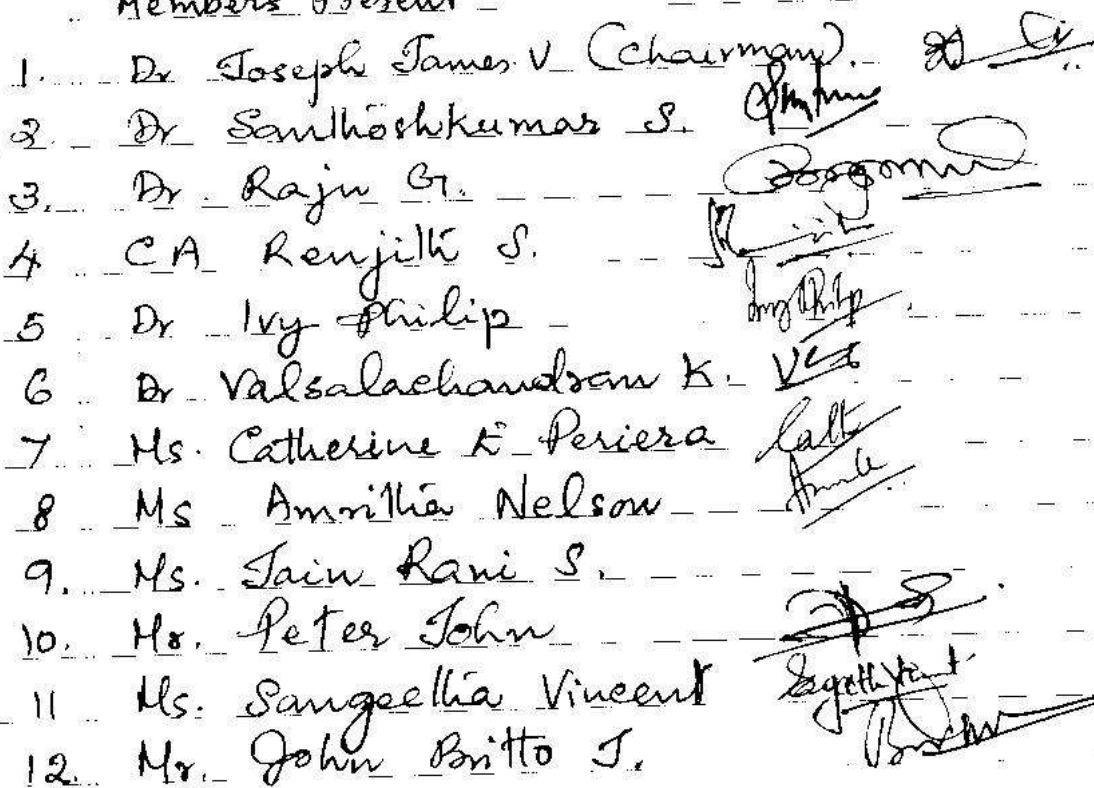 Members Present
1. Dr Joseph James V (Chairman).
2. Dr Santhoshkumar S.
3. Dr. Raju G.
4 CA Renjith S.
5 Dr Ivy Philip
6 Dr Valsalachandran K.
7 Ms. Catherine E Periera
8 Ms Amritha Nelson
9. Ms. Jain Rani S.
10. Mr. Peter John
11 Ms. Sangeetha Vincent
12. Mr. John Britto J.